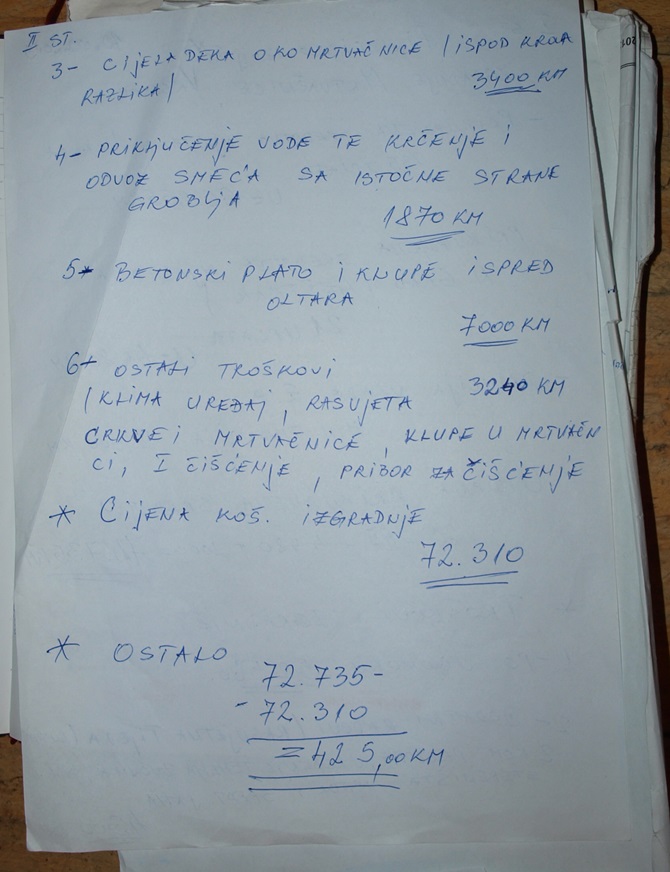 II ST.
3- CIJELA DEKA OKO MRTVAČNICE / ISPOD KROA
RAZLIKA/
3400 KM
4- PRIKLJUČENJE VODE TE KRČENJE I
ODVOZ SMEĆA SA ISTOČNE STRANE
GROBLJA
1870 KM
5- BETONSKI PLATO I KLUPE ISPRED
OLTARA
7000 KM
6- OSTALI TROŠKOVI
3240 KM
/ KLIMA UREĐAJ, RASVJETA
CRKVE I MRTVAČNICE, KLUPE U MRTVAČN
CI, I ČIŠĆENJE, PRIBOR ZA ČIŠĆENJE
* CIJENA KOŠ. IZGRADNJE
72.310
* OSTALO
72.735-
- 72.310
= 425,00 KM